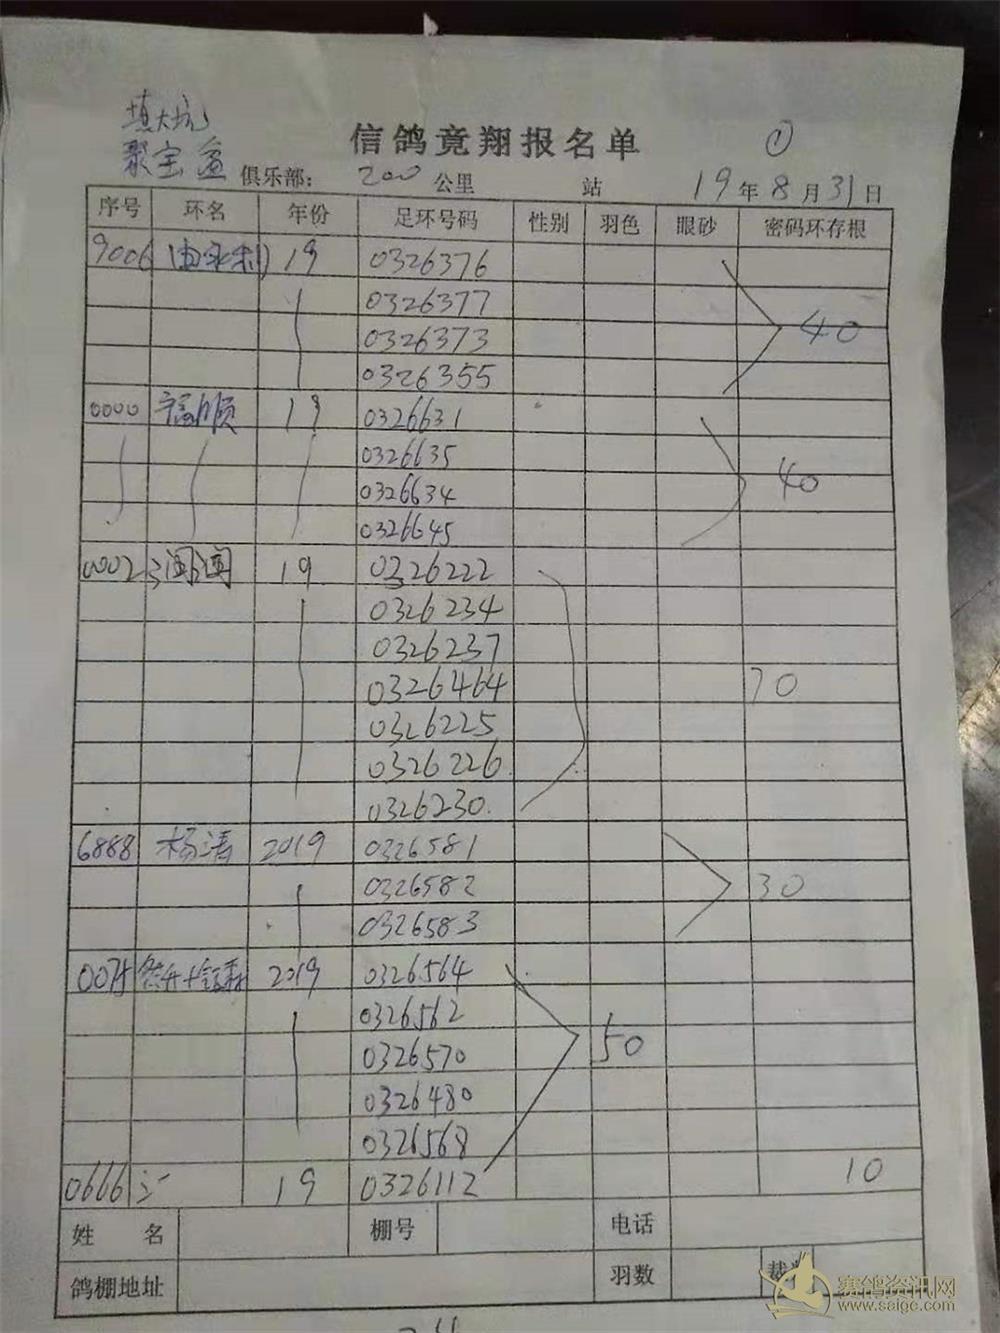 填大坑
聚宝盆
信鸽竞翔报名单 ①
俱乐部： 200 公里 站 19年8月31日
序号 环名 年份 足环号码 性别 羽色 眼砂 密码环存根
9006 19 0326376
0326377
0326373 40
0326355
0000 福顺 19 0326631
0326635
0326634 40
0326645
0002 闽闽 19 0326222
0326234
0326237
0326464 70
0326225
0326226
0326230
6888 杨涛 2019 0326581
0326582 30
0326583
2019 0326564
0326562
0326570 50
0326480
0326568
0666 19 0326112 10
姓名 棚号 电话
鸽棚地址 羽数 裁
赛鸽资讯网
www.saige.com